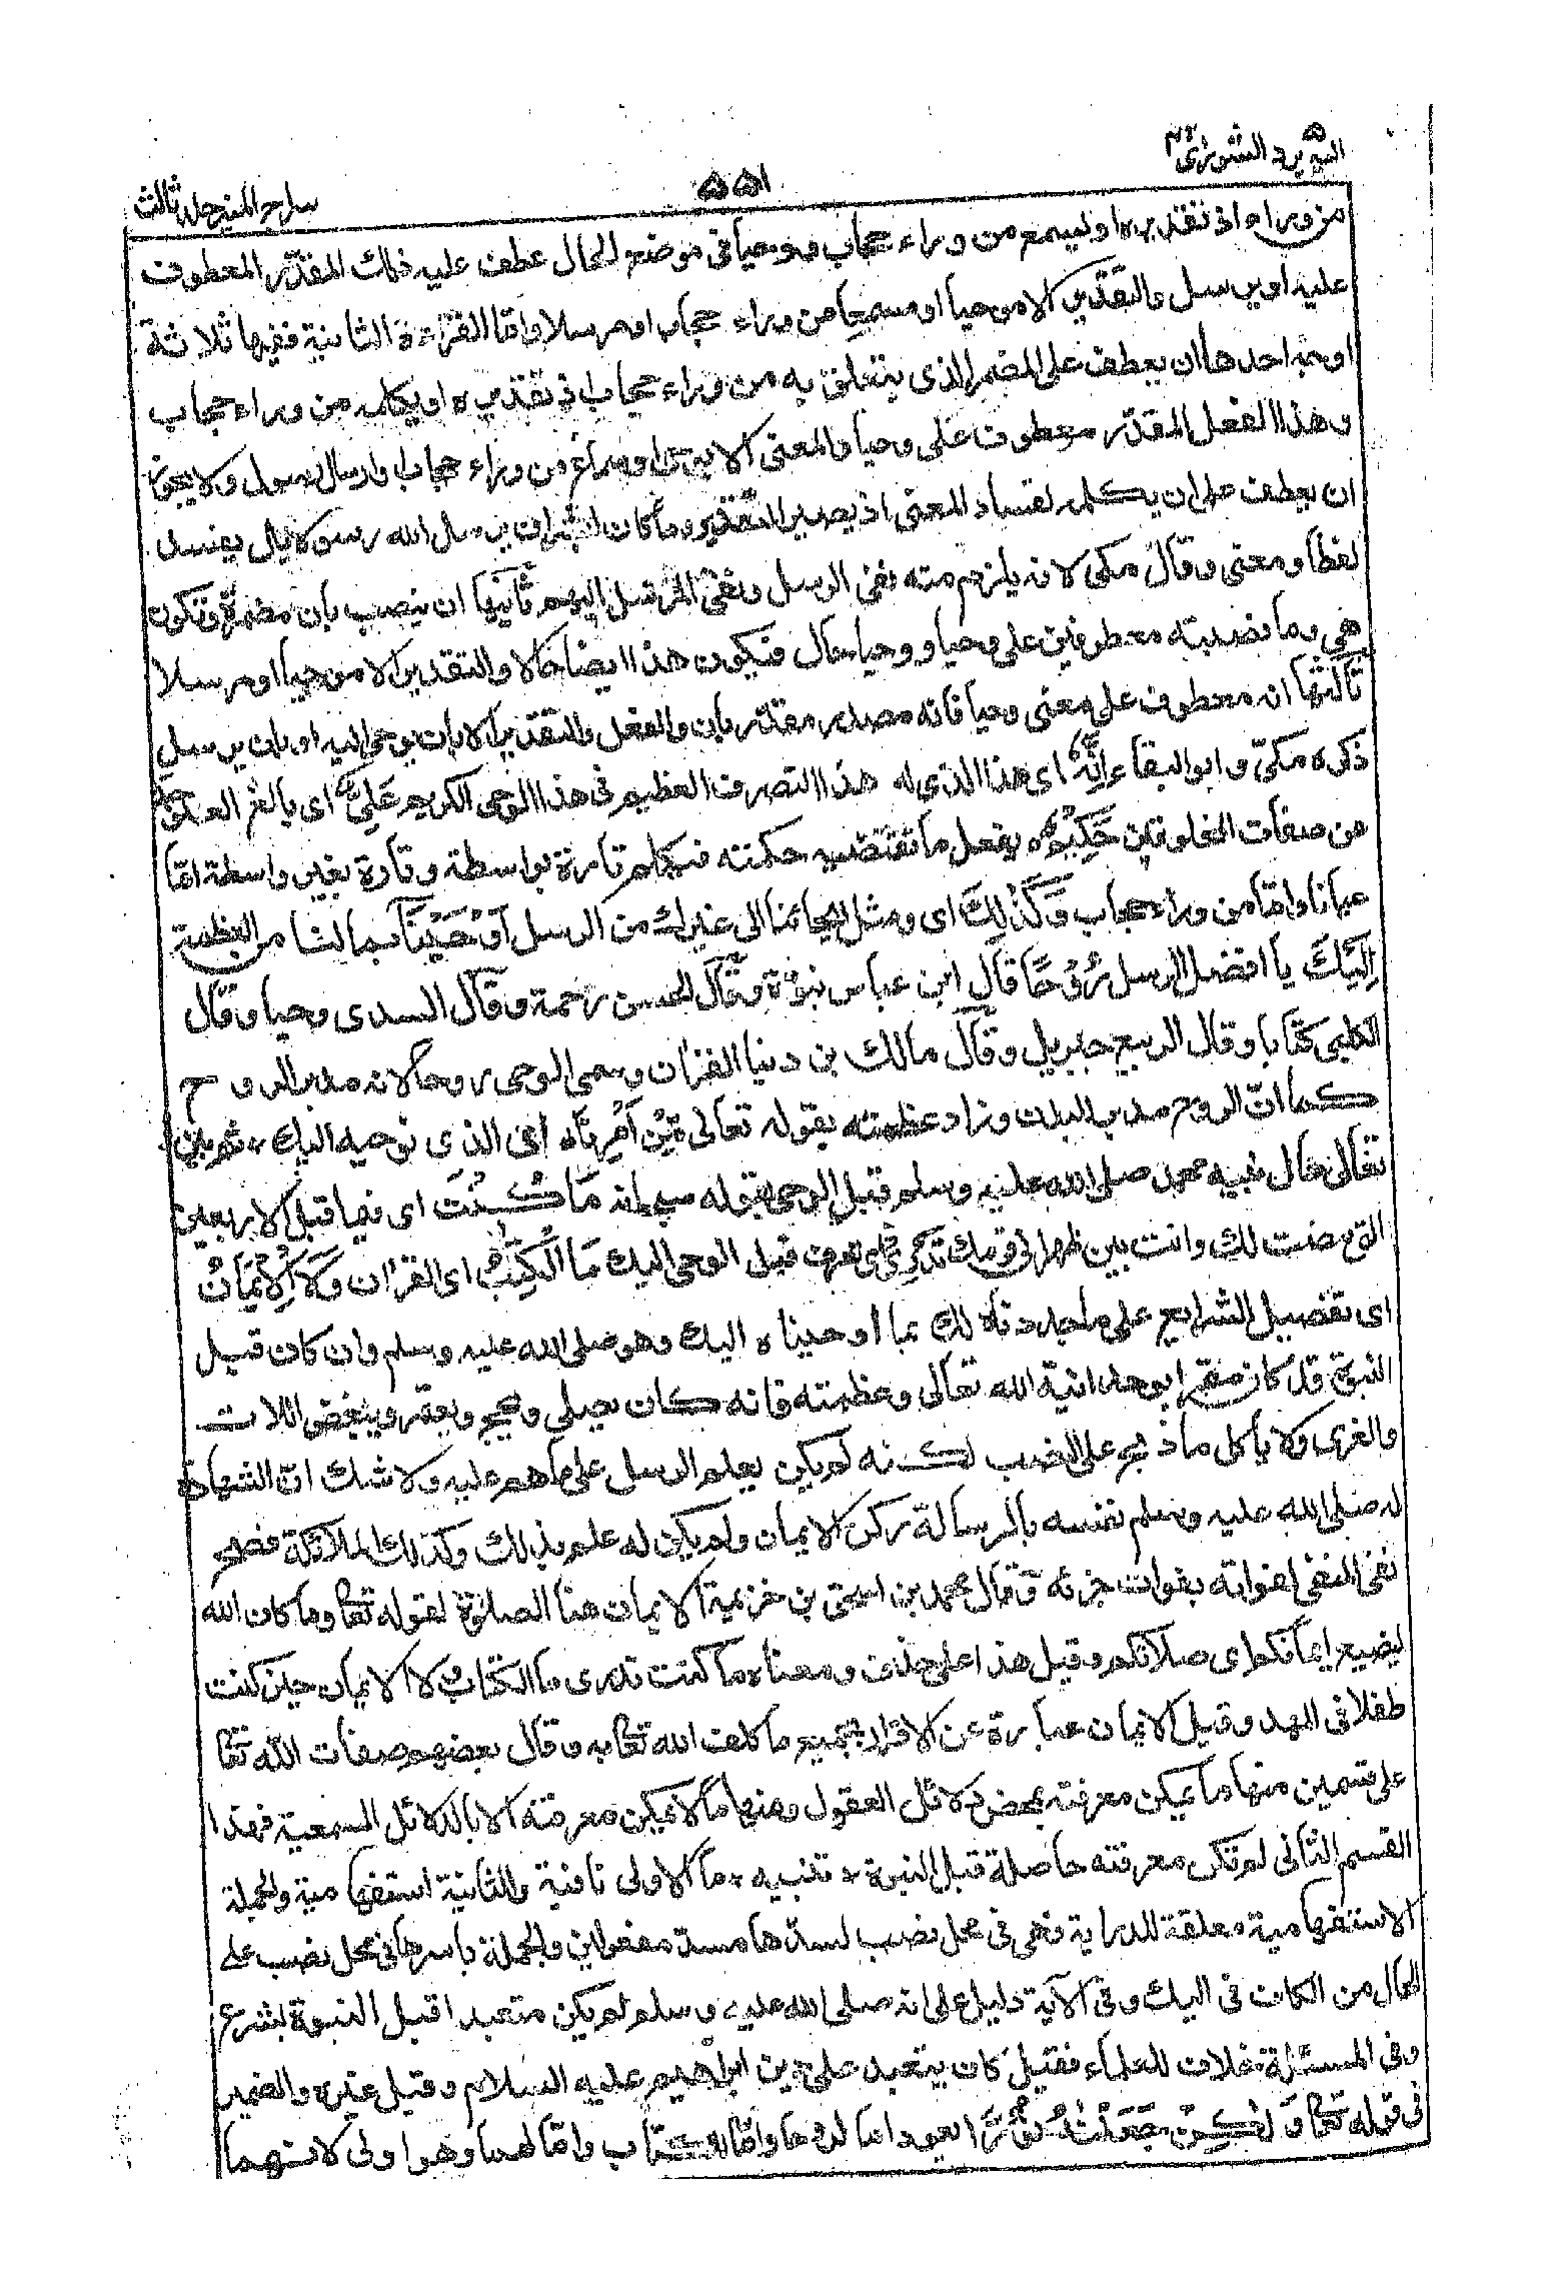 اليه يرد الشورى ٤٢
٥٥١
سراج المنير جلد ثالث
من وراء اذ تقديره او ليسمع من وراء حجاب ووحيا فى موضع الحال عطف عليه ذلك المقدّر المعطوف
عليه او يرسل والتقدير الا موحيا او مسمعا من وراء حجاب او مرسلا واما القراءة الثانية ففيها ثلاثة
اوجه احدها ان يعطف على المضمر الذى يتعلق به من وراء حجاب اذ تقديره او يكلمه من وراء حجاب
وهذا الفعل المقدّر معطوف على وحيا والمعنى الا بوحى او سماع من وراء حجاب او ارسال رسول ولا يجوز
ان يعطف على ان يكلمه لفساد المعنى اذ يصير التقدير وما كان لبشر ان يرسل الله رسولا بل يفسد
لفظا ومعنى وقال مكى لانه يلزم منه نفى الرسل ونفى المرسل اليهم ثانيها ان ينصب بان مضمرة وتكون
هى وما نصبته معطوفين على وحيا ووحيا حال فتكون هذا ايضا حالا والتقدير الا موحيا او مرسلا
ثالثها انه معطوف على معنى وحيا فانه مصدر مقدّر بان والفعل والتقدير الا بان يوحى اليه او بان يرسل
ذكره مكىّ وابو البقاء اِنَّهٗ اى هذا الذى له هذا التصرف العظيم فى هذا الوحى الكريم عَلِيٌّ اى بالغ العلو
من صفات المخلوقين حَكِيْمٌ ه يفعل ما تقتضيه حكمته فيكلم تارة بواسطة وتارة بغير واسطة امّا
عيانا وامّا من وراء حجاب وَكَذٰلِكَ اى ومثل ايحائنا الى غيرك من الرسل اَوْحَيْنَآ بمالنا من العظمة
اِلَيْكَ يا افضل الرسل رُوْحًا قال ابن عباس نبوّة وقال الحسن رحمة وقال السدى وحيا وقال
الكلبى كتابا وقال الربيع جبريل وقال مالك بن دينا القرٰان وسمى الوحى روحا لانه مدبر الروح
كما انّ الروح مدبر البدن وزاد عظمته بقوله تعالى مِّنْ اَمْرِنَا ه اى الذى نوحيه اليك ؞ ثم بين
تعالى حال نبيه محمد صلى الله عليه وسلم قبل الوحى بقوله سبحانه مَا كُنْتَ اى فيما قبل الاربعين
التى مضت لك وانت بين ظهرانى قومك تَدْرِىْ اى تعرف قبل الوحى اليك مَا الْكِتٰبُ اى القرٰان وَلَا الْاِيْمَانُ
اى تفصيل الشرايع على ما جددناه لك بما اوحيناه اليك وهو صلى الله عليه وسلم وان كان قبل
النبوّة قد كان مقرا بوحدانية الله تعالى وعظمته فانه كان يصلى ويحج ويعتمر ويبغض اللات
والعزى ولا ياكل ما ذبح على النصب لكنه لم يكن يعلم الرسل على ما هم عليه ولا شك انّ الشهادة
له صلى الله عليه وسلم نفسه بالرسالة ركن الايمان ولم يكن له علم بذلك وكذلك الملائكة فصح
نفى المنفى لفواته بفوات جزئه وقال محمد بن اسحق بن خزيمة الايمان هنا الصلٰوة لقوله تعا وما كان الله
ليضيع ايمانكم اى صلاتكم وقيل هذا على حذف ومعناه ما كنت تدرى ما الكتاب ولا الايمان حين كنت
طفلا فى المهد وقيل الايمان عبارة عن الاقرار بجميع ما كلف الله تعا به وقال بعضهم صفات الله تعا
على قسمين منها ما يمكن معرفته بمحض دلائل العقول ومنها ما لا يمكن معرفته الا بالدلائل السمعية فهذا
القسم الثانى لم تكن معرفته حاصلة قبل النبوة ؞ تنبيه ؞ ما الاولى نافية والثانية استفهامية والجملة
الاستفهامية معلقة للدراية فهى فى محل نصب لسدّها مسدّ مفعولين والجملة باسرها فى محل نصب على
الحال من الكاف فى اليك وفى الآية دليل على انه صلى الله عليه وسلم لم يكن متعبدا قبل النبوة بشرع
وفى المسئلة خلاف للعلماء فقيل كان يتعبد على دين ابراهيم عليه السلام وقيل غيره والضمير
فى قوله تعا وَلٰكِنْ جَعَلْنٰهُ نُوْرًا يعود اما لروحا وامّا للكتاب وامّا لهما وهو اولى لانهما